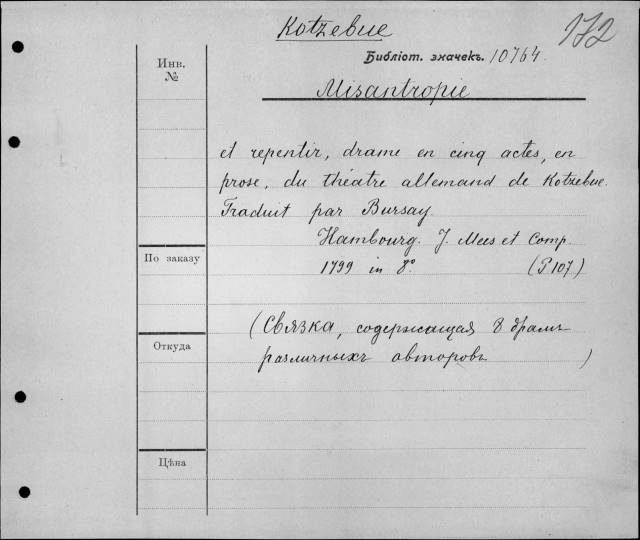 Kotzebue
172
Библіот. значекъ. 10764.
Инв.
№
Misantropie
et repentir, drame en cinq actes, en
prose, du théatre allemand de Kotzebue.
Traduit par Bursay
Hambourg. J. Mees et Comp.
По заказу
1799 in 8° (P 107)
(Связка, содержащая 8 драмъ
Откуда
различныхъ авторовъ )
Цѣна